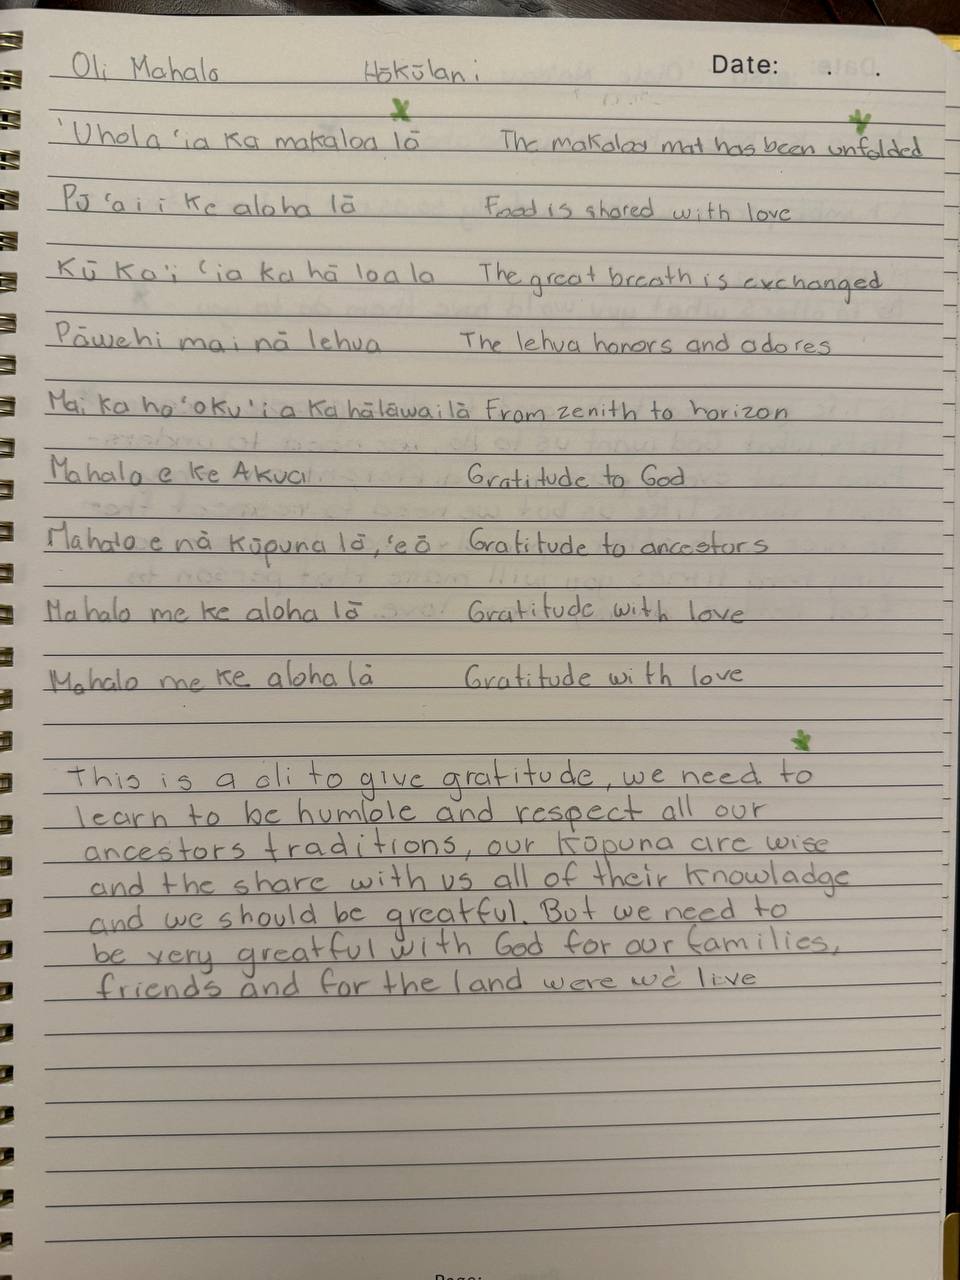 Oli Mahalo Hōkūlani Date: . .
'Uhola 'ia ka makaloa lā The makaloa mat has been unfolded
Pū 'ai i ke aloha lā Food is shared with love
Kū ka'i 'ia ka hā loa la The great breath is exchanged
Pāwehi mai nā lehua The lehua honors and adores
Mai ka ho'oku'i a ka hālāwai lā From zenith to horizon
Mahalo e ke Akua Gratitude to God
Mahalo e nā kūpuna lā, 'eā Gratitude to ancestors
Mahalo me ke aloha lā Gratitude with love
Mahalo me ke aloha lā Gratitude with love
This is a oli to give gratitude, we need to
learn to be humble and respect all our
ancestors traditions, our kūpuna are wise
and the share with us all of their knowladge
and we should be greatful. But we need to
be very greatful with God for our families,
friends and for the land were we live